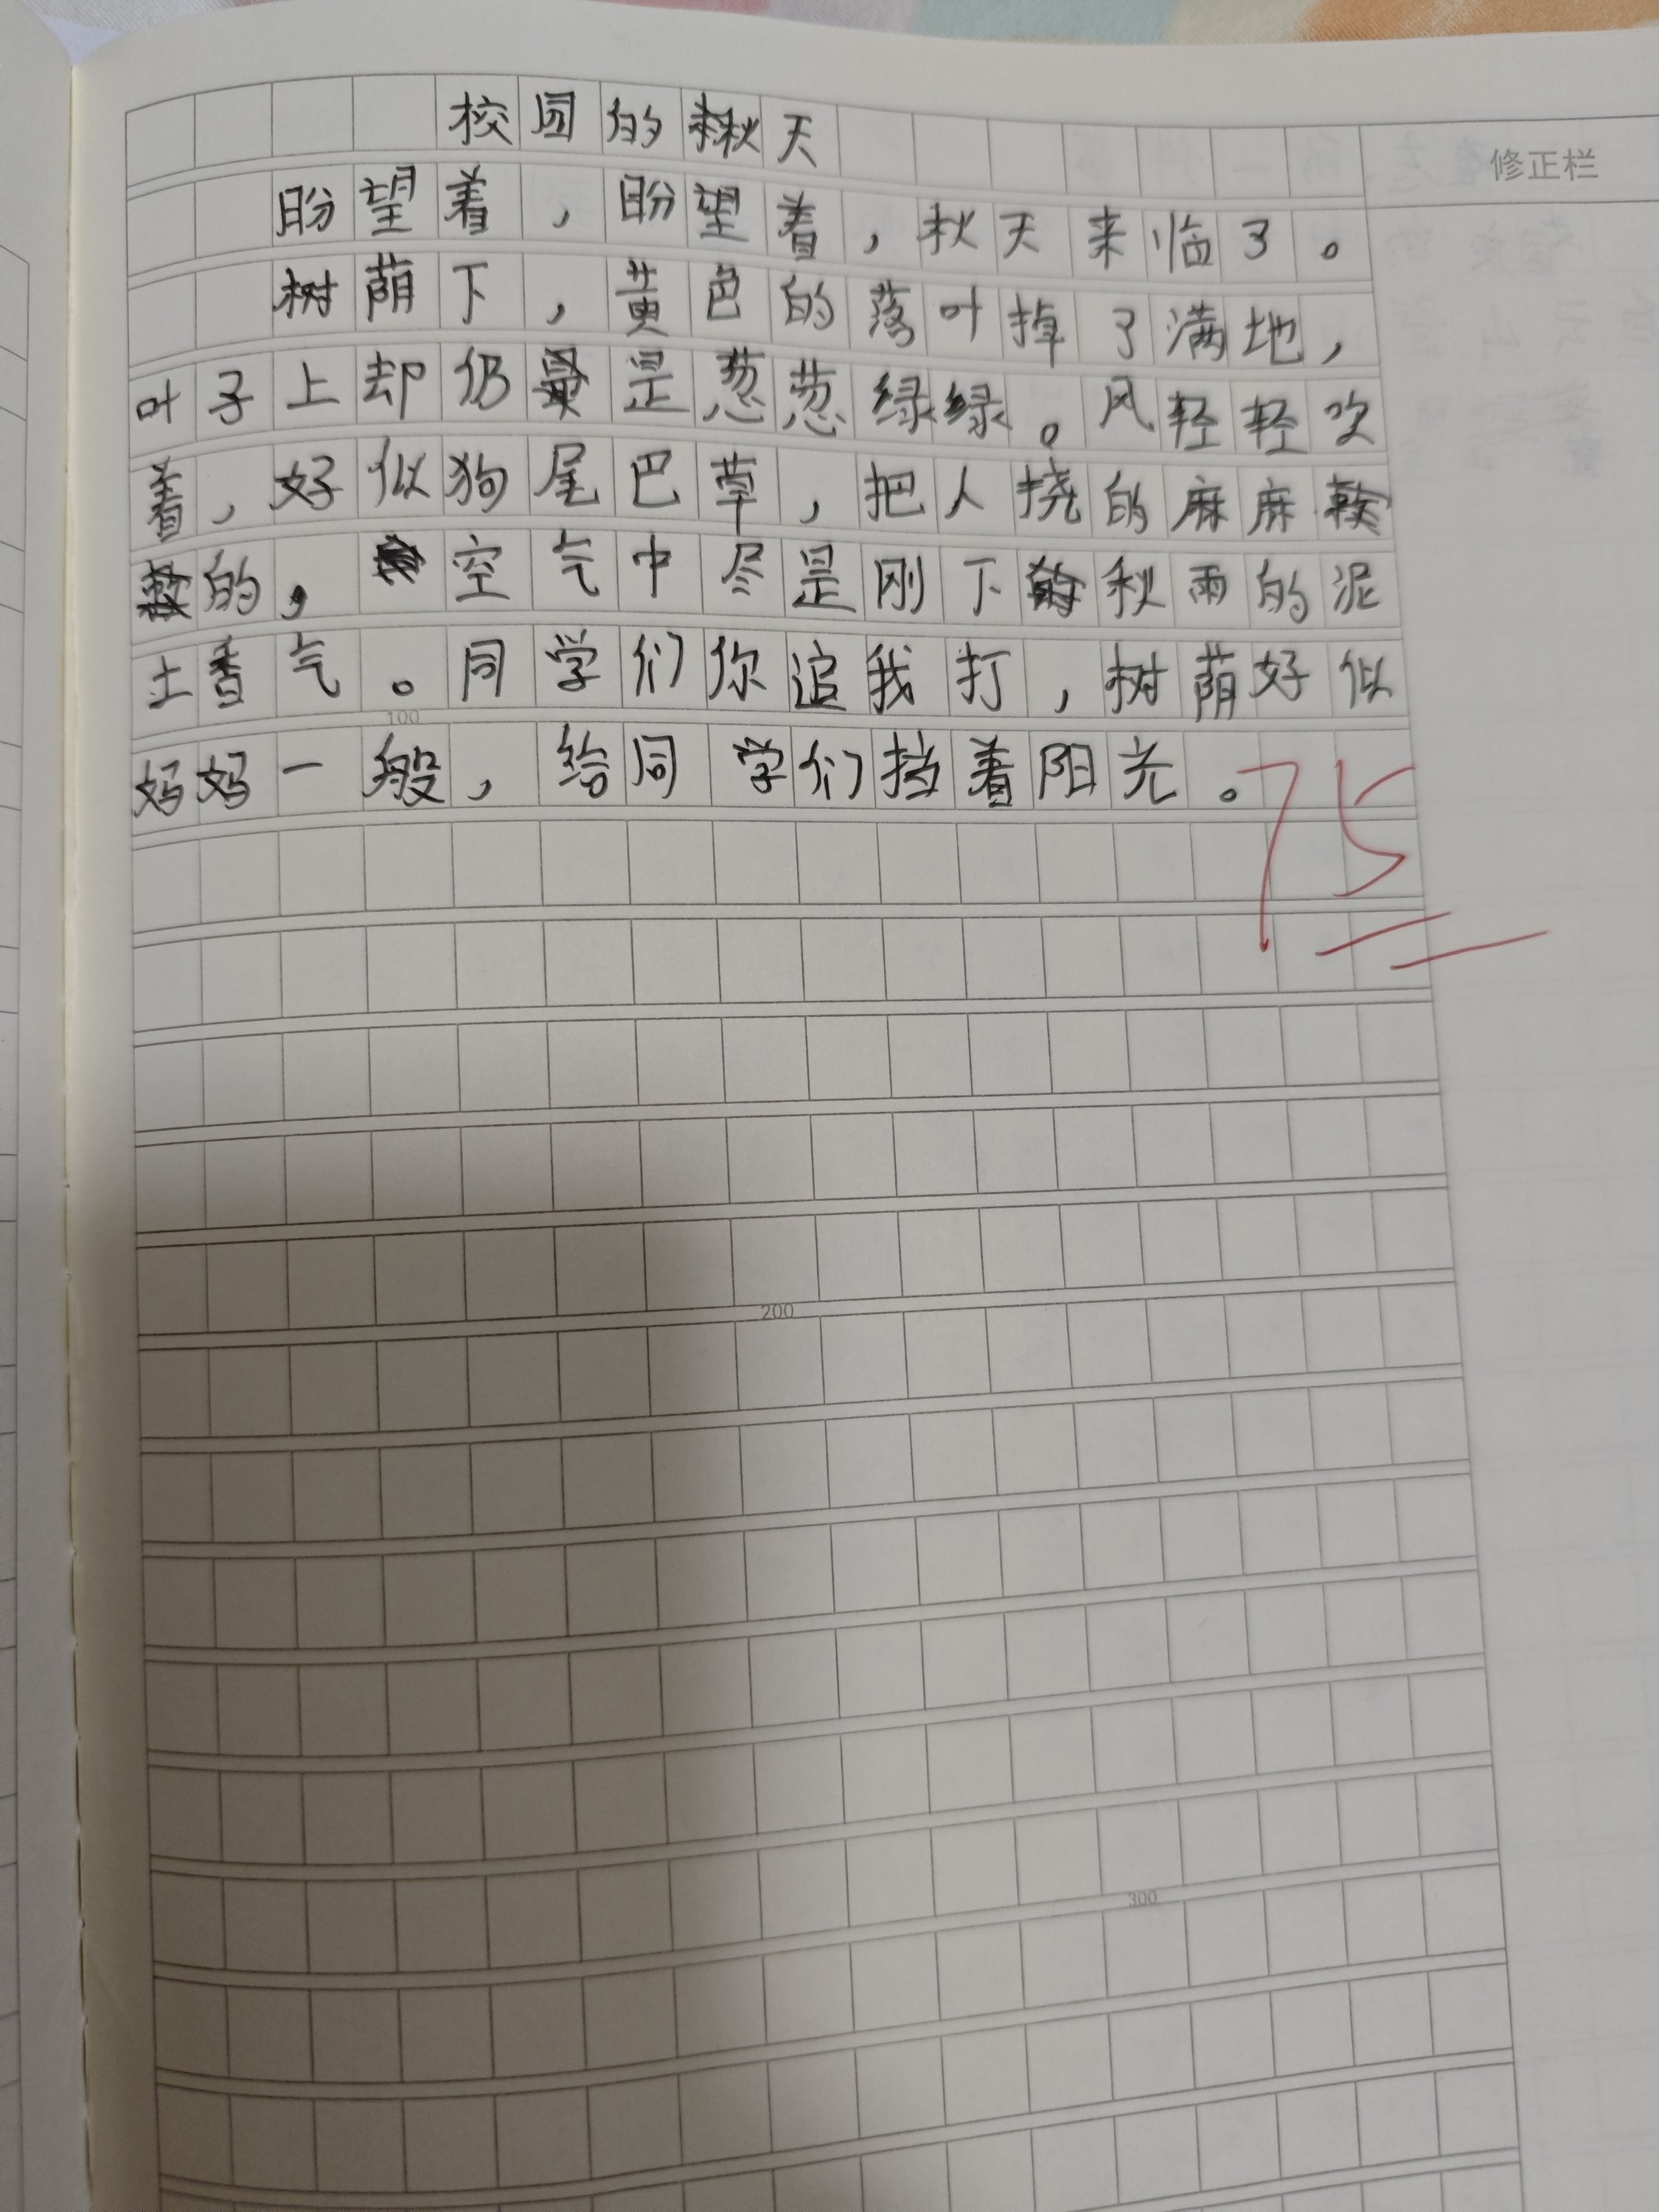 校园的秋天
修正栏
盼望着，盼望着，秋天来临了。
树荫下，黄色的落叶掉了满地，
叶子上却仍是葱葱绿绿。风轻轻吹
着，好似狗尾巴草，把人挠的麻麻
的，空气中尽是刚下秋雨的泥
土香气。同学们你追我打，树荫好似
100
妈妈一般，给同学们挡着阳光。
75
200
300